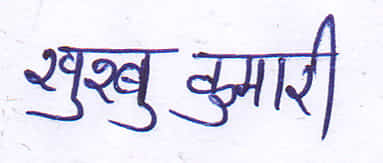 खुश्बु कुमारी